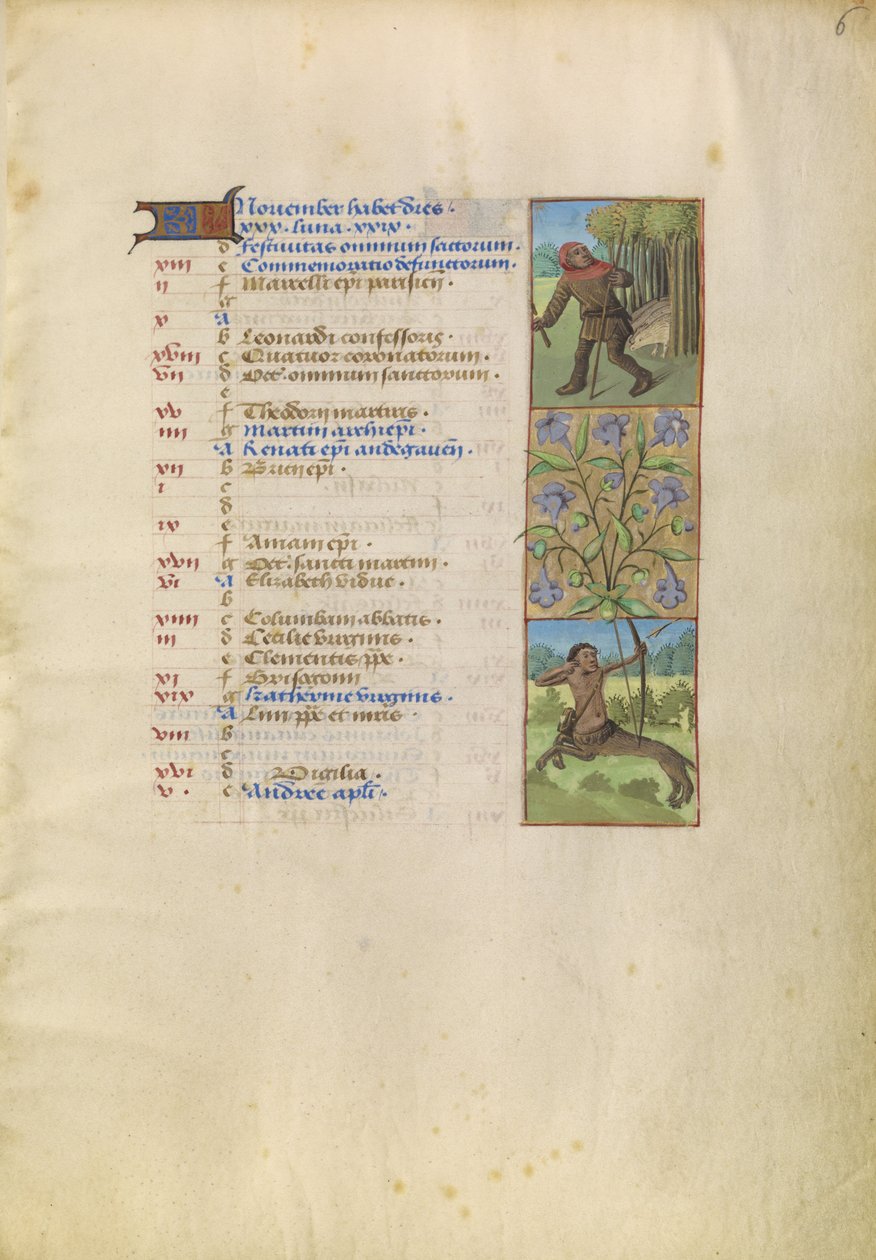 6
KL Nouember habet dies
xxx. luna. xxix.
d festiuitas omnium sanctorum.
xiii e Commemoratio defunctorum.
ii f Marcelli epi parisien.
g
x A
b Leonardi confessoris.
xviii c Quatuor coronatorum.
vii d Oct. omnium sanctorum.
e
xv f Theodori martiris.
iiii g Martini archiepi.
A Renati epi andegauen.
xii b Bricii epi.
i c
d
ix e
f Aniani epi.
xvii g Oct. sancti martini.
vi A Elizabeth vidue.
b
xiiii c Columbani abbatis.
iii d Cecilie virginis.
e Clementis ppe.
xi f Grisogoni
xix g katherine virginis.
A Lini ppe et mris.
viii b
c
xvi d Vigilia.
v. e Andree apli.